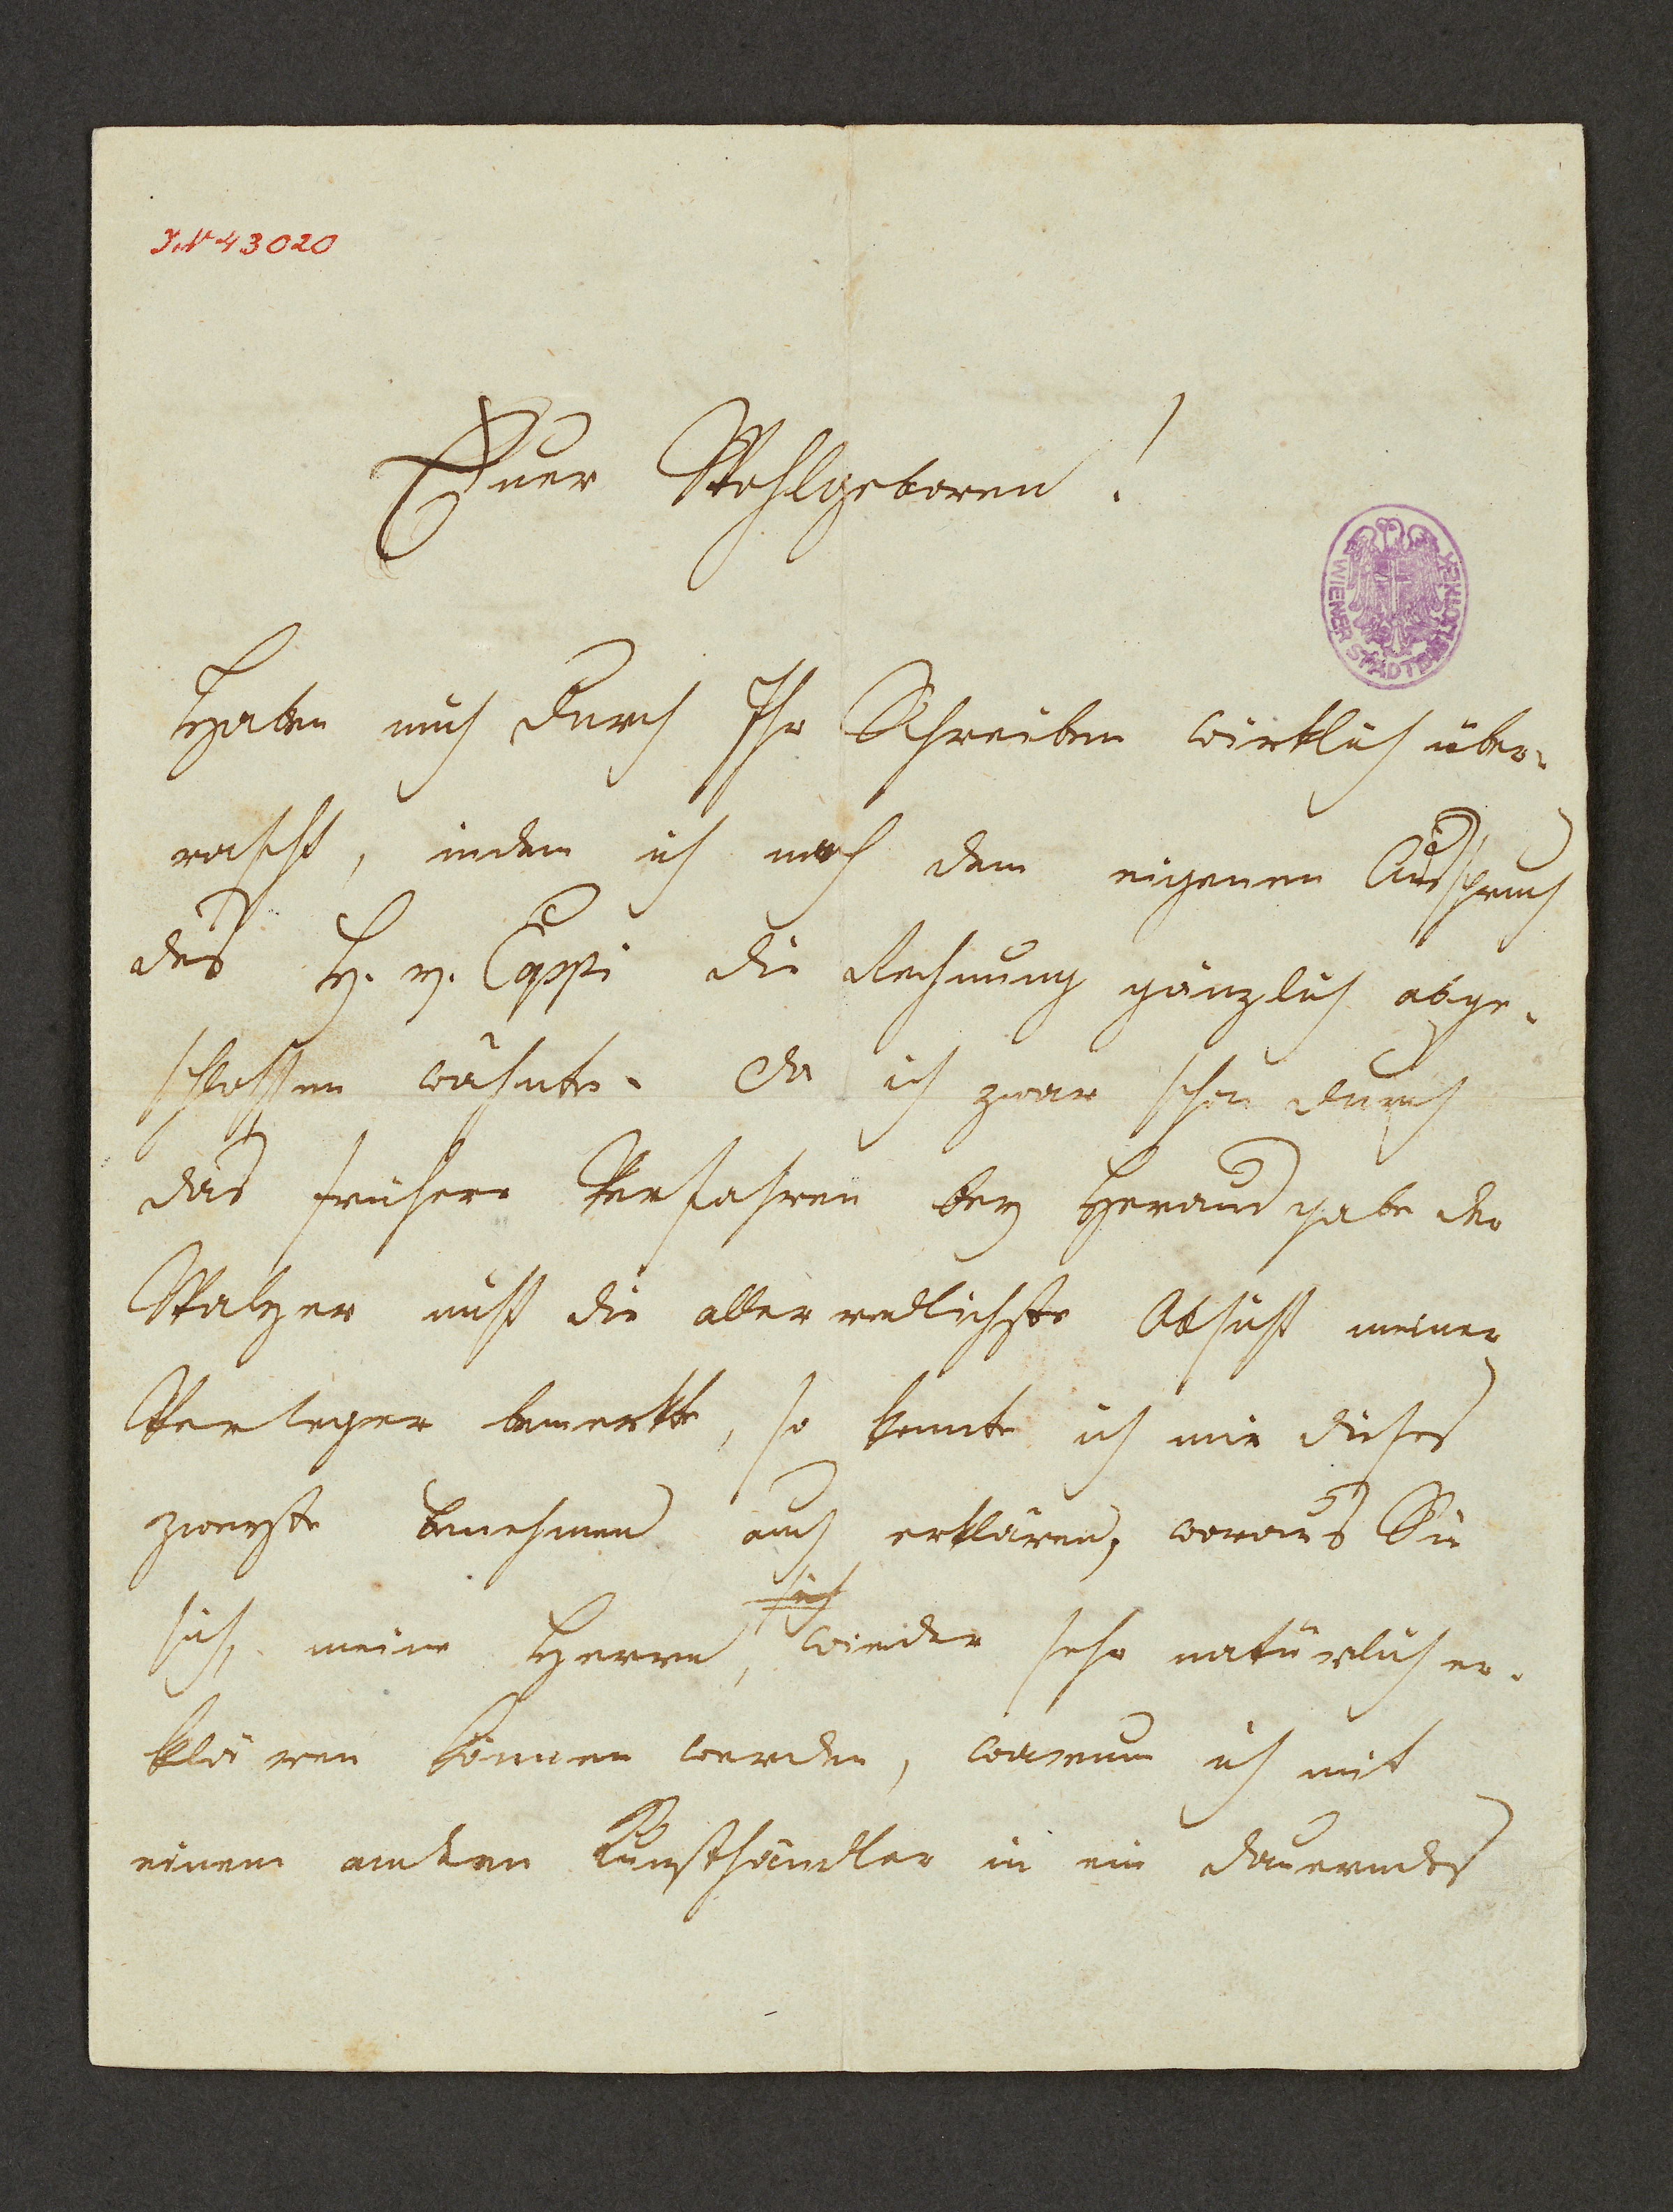 I.N. 43020
Euer Wohlgeboren!
WIENER STADTBIBLIOTHEK
Haben mich durch Ihr Schreiben wirklich über-
rascht, indem ich nach dem eigenen Ausspruch
des H. v. Cappi die Rechnung gänzlich abge-
schlossen wähnte. Da ich zwar schon durch
das frühere Verfahren bey Herausgabe der
Walzer nicht die allerredlichste Absicht meiner
Verleger bemerkte, so konnte ich mir dieses
zweyte Benehmen auch erklären, woraus Sie
sich, meine Herrn, sich wieder sehr natürlich er-
klären können werden, warum ich mit
einem andern Kunsthändler in ein dauerndes